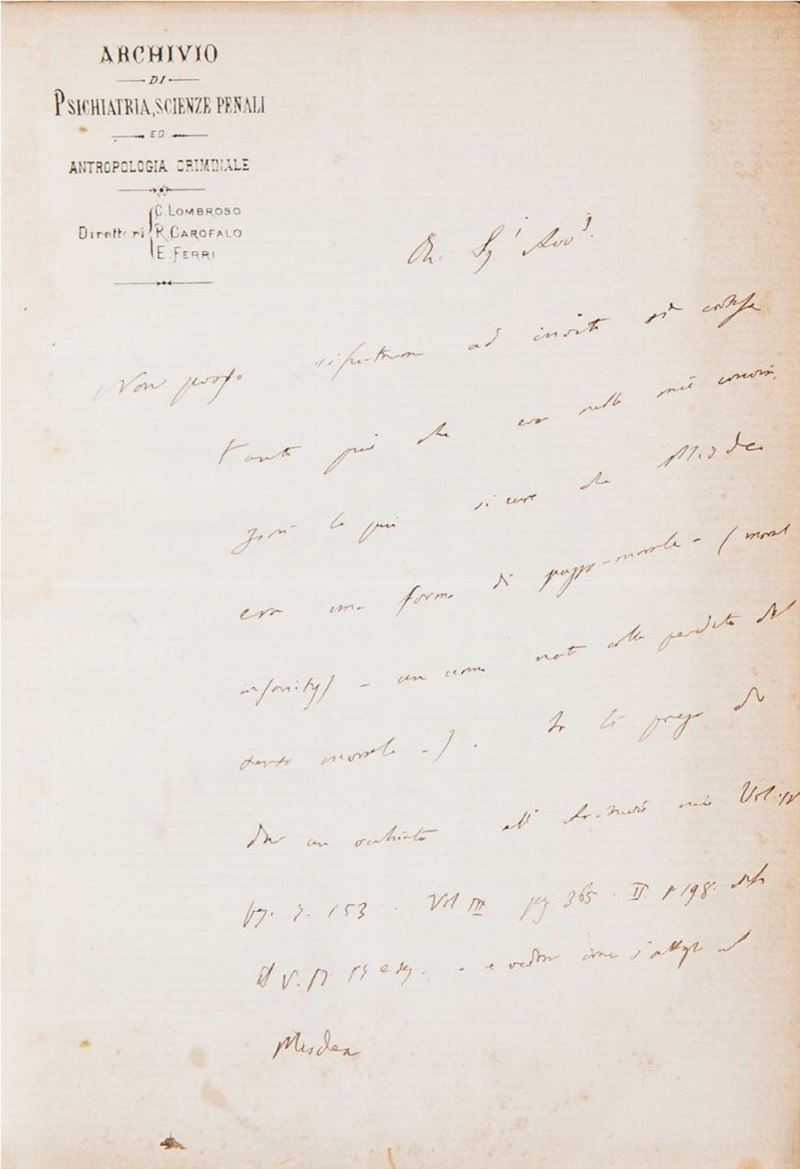 ARCHIVIO
DI
PSICHIATRIA, SCIENZE PENALI
ED
ANTROPOLOGIA CRIMINALE
Direttori
C. LOMBROSO
R. GAROFALO
E. FERRI
Sigr Avv
Non posso ad invito
tanto più che era nelle mie
la più che Misdea
era una forma di pazzo-morale - (moral
insanity) - un uomo nato colla perdita del
senso morale -). Io la prego di
dar un occhiata all Archivio mio Vol. IV
pg. 153. Vol III pg 365. II. p 198.
il V. pg e sg. - e vedrà come s'attagli al
Misdea